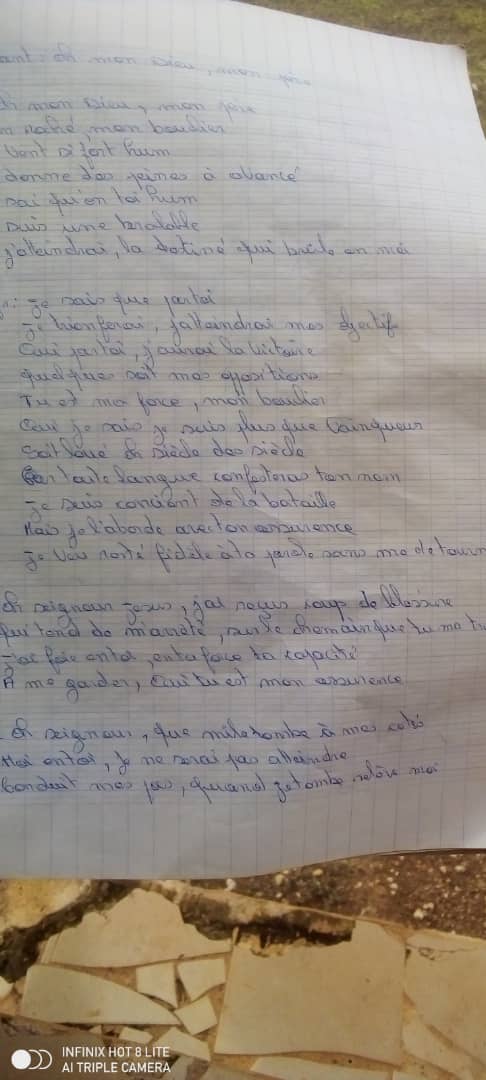 ant: Oh mon Dieu, mon père
Oh mon Dieu, mon père
n roché, mon boulier
vent si fort hum
donne des peines à avancé
sai qu'en toi hum
suis une
j'atteindrai, la destiné qui brûle en moi
je sais que partoi
Je trionferai, j'atteindrai mes objectif
Oui partoi, j'aurai la victoire
quelques soit mes oppositions
Tu et ma force, mon boulier
Oui je sais je suis plus que Vainqueur
Soit loué Oh siècle des siècle
Car toute langue confesteras ton nom
Je suis concient de la bataille
Mais je l'aborde avec ton assurence
Je Veu resté fidèle à ta parole sans me detourn
Oh seigneur Jesus, j'ai reçus coup de blessure
qui tend de m'arreté, sur le chemain que tu ma tra
J'ai foie entoi, enta force ta capacité
A me garder, Car tu et mon assurence
Oh seigneur, que mile tombe à mes coté
Moi entoi, je ne serai pas atteindre
Conduit mes pas, quand je tombe relève moi
INFINIX HOT 8 LITE
AI TRIPLE CAMERA